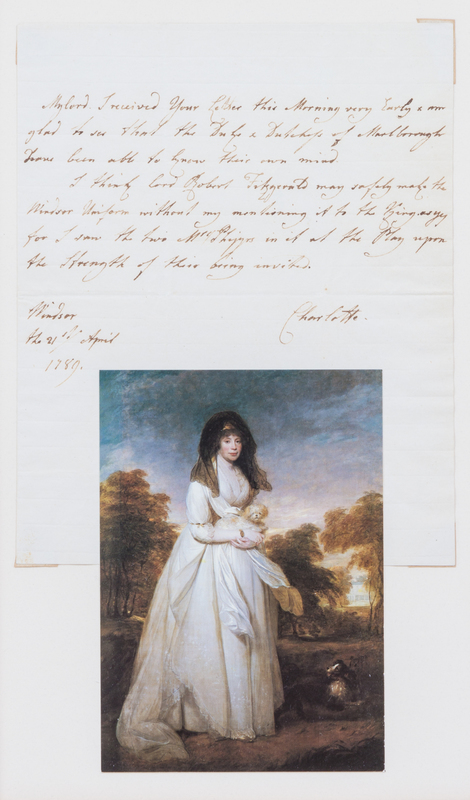 Mylord. I received Your Letter this Morning very Early & am
glad to see that the Duke & Dutchess of Marlborough
have been able to know their own mind
I think lord Robert Fitzgerald may safely make the
Windsor Uniform without my mentioning it to the King
for I saw the two Mrs Phipps in it at the Play upon
the Strength of their being invited.
Windsor
the 21st April
1789.
Charlotte.